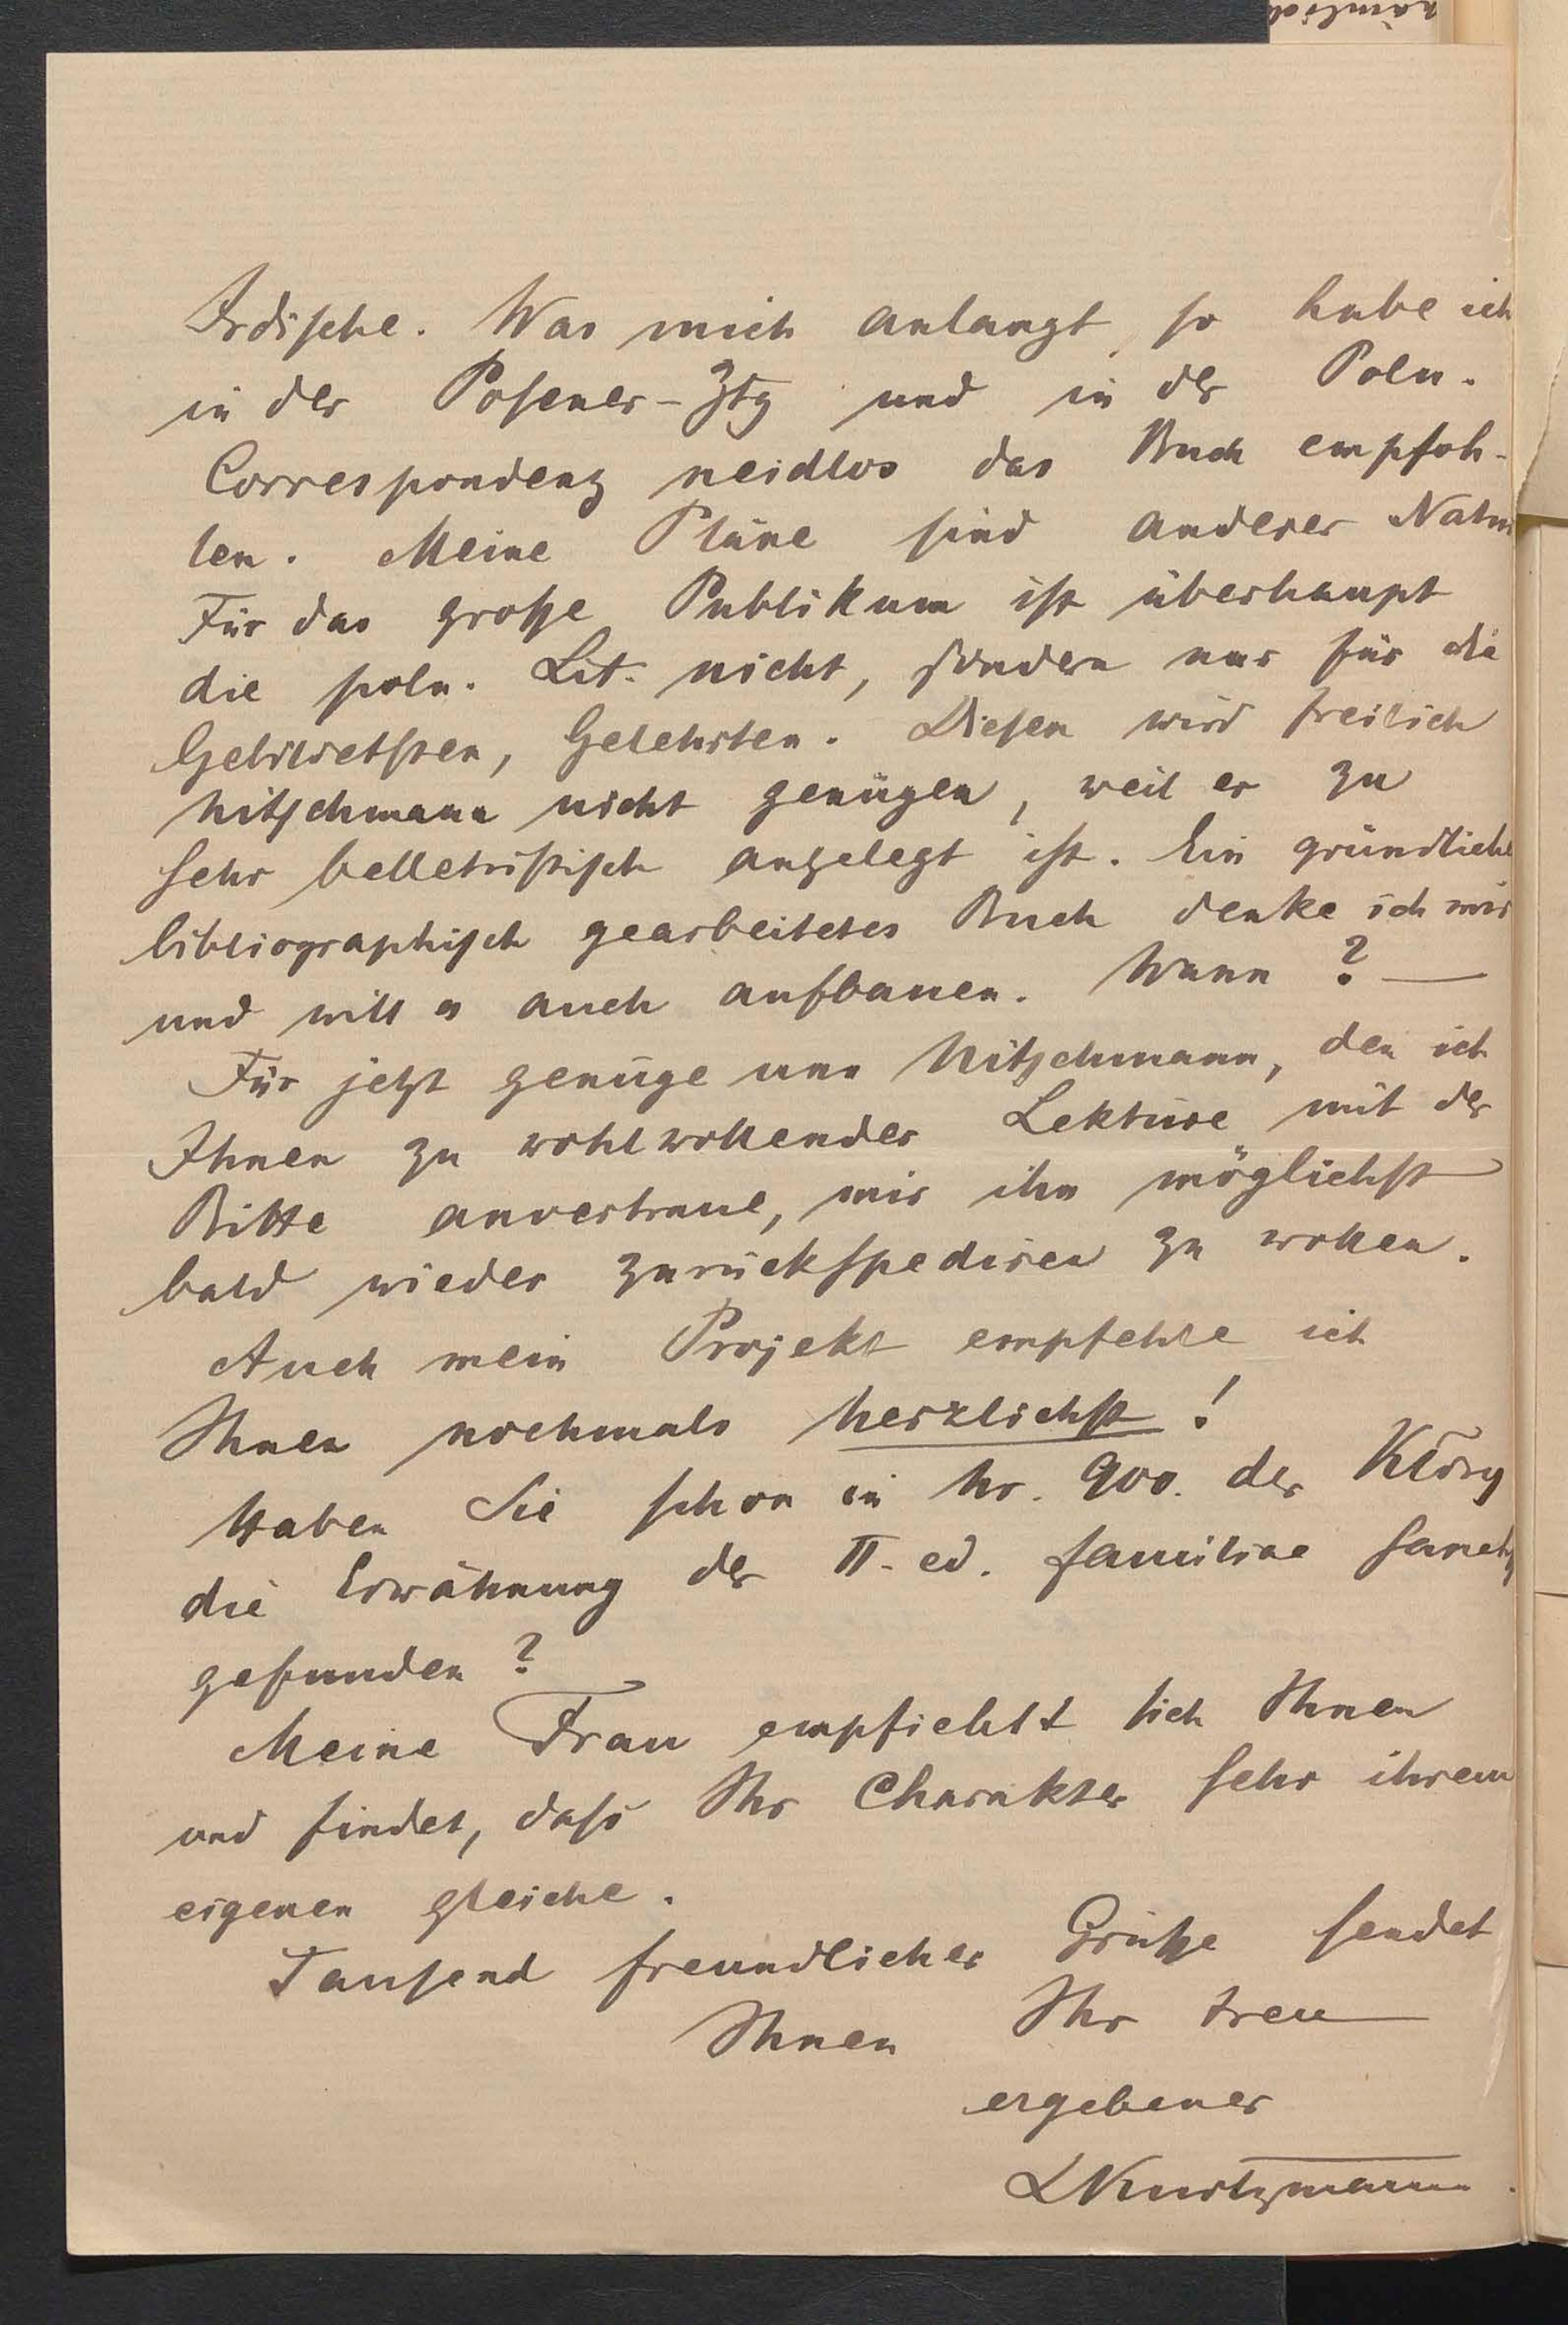 Irdische. Was mich anlangt, so habe ich
in der Posener-Ztg und in der Poln.
Correspondenz neidlos das Buch empfoh-
len. Meine Pläne sind anderer Natur
Für das große Publikum ist überhaupt
die poln. Lit. nicht, sondern nur für die
Gebildetsten, Gelehrten. Diesen wird freilich
Nitschmann nicht genügen, weil er zu
sehr belletristisch angelegt ist. Ein gründlich
bibliographisch gearbeitetes Buch denke ich mir
und will es auch aufbauen. Wann? —
Für jetzt genüge uns Nitschmann, den ich
Ihnen zu wohlwollender Lektüre mit der
Bitte anvertraue, mir ihn möglichst
bald wieder zurückspediren zu wollen.
Auch mein Projekt empfehle ich
Ihnen nochmals herzlichst!
Haben Sie schon in Nr. 900. der Kłosy
die Erwähnung der II. ed. familiae sanct
gefunden?
Meine Frau empfiehlt sich Ihnen
und findet, dass Ihr Charakter sehr ihrem
eigenen gleiche.
Tausend freundlicher Grüße sendet
Ihnen Ihr treu
ergebener
LKurtzmann.